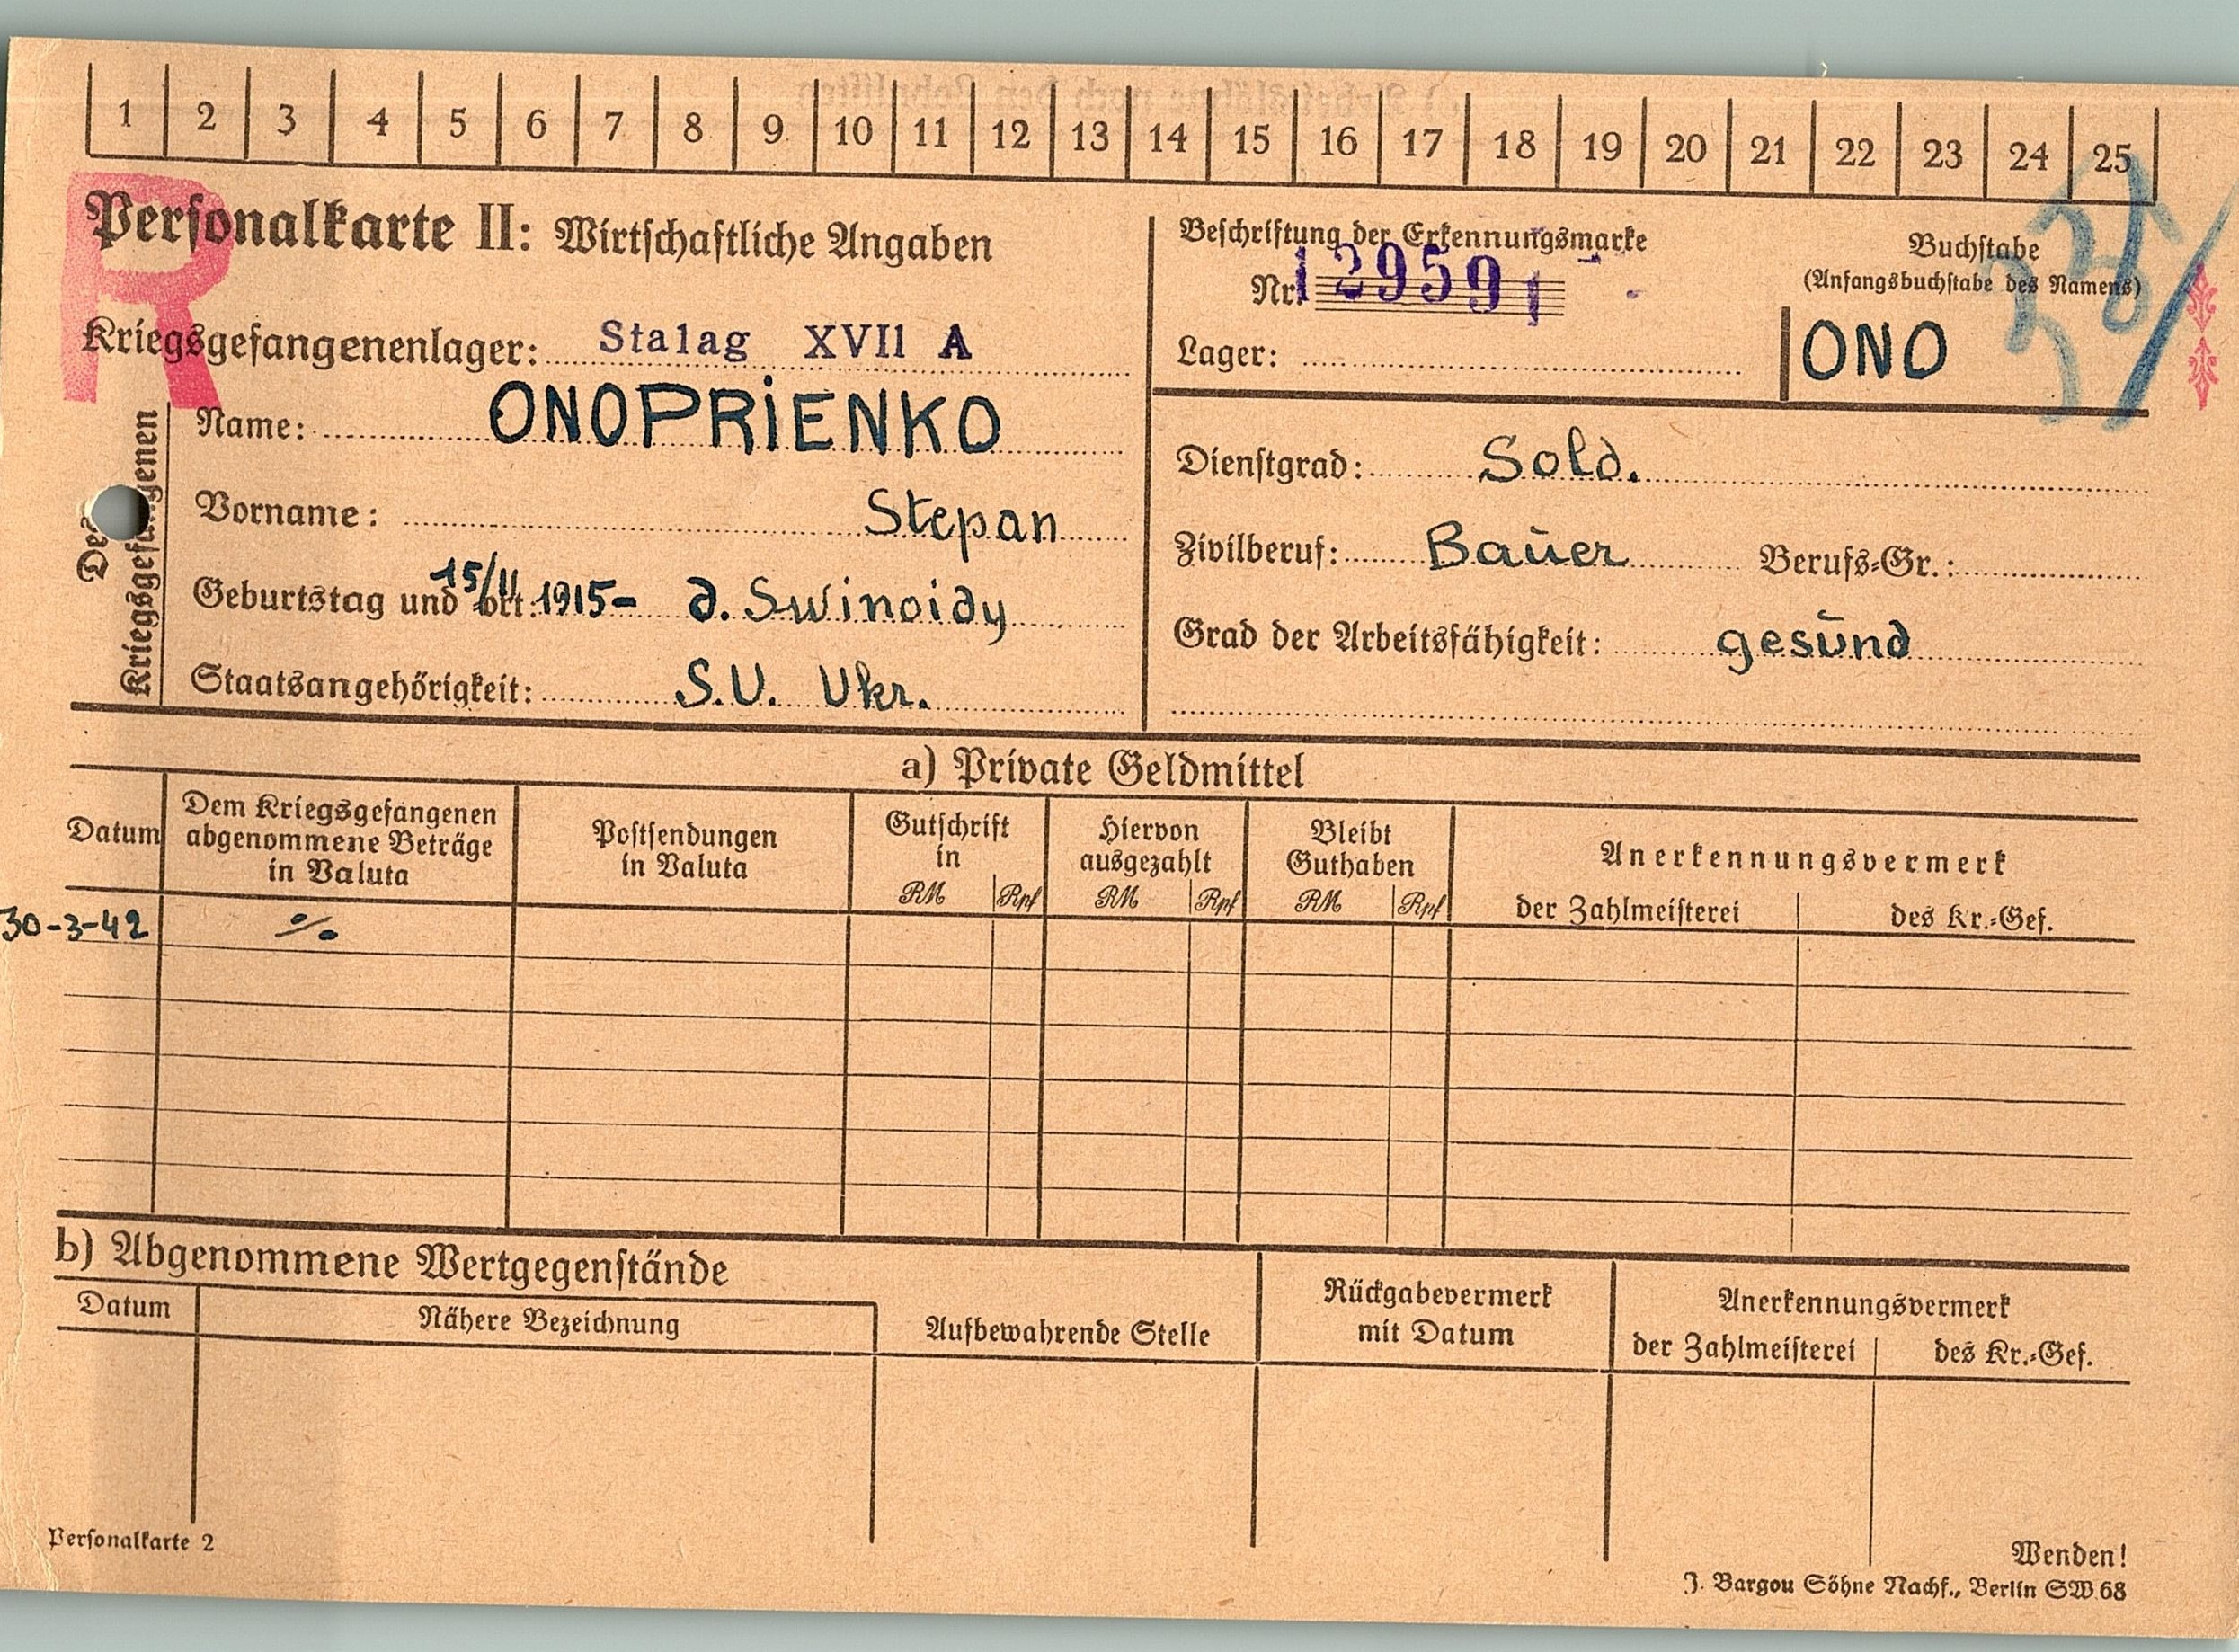 1 2 3 4 5 6 7 8 9 10 11 12 13 14 15 16 17 18 19 20 21 22 23 24 25
R
Personalkarte II: Wirtschaftliche Angaben
Kriegsgefangenenlager: Stalag XVII A
Beschriftung der Erkennungsmarke
Nr. 129591
Lager:
Buchstabe
(Anfangsbuchstabe des Namens)
ONO
Des Kriegsgefangenen
Name: ONOPRIENKO
Vorname: Stepan
Geburtstag und Ort: 15/II 1915- d. Swinoidy
Staatsangehörigkeit: S.U. Ukr.
Dienstgrad: Sold.
Zivilberuf: Bauer Berufs-Gr.:
Grad der Arbeitsfähigkeit: gesund
a) Private Geldmittel
Datum
Dem Kriegsgefangenen
abgenommene Beträge
in Valuta
Postsendungen
in Valuta
Gutschrift
in
RM Rpf
Hiervon
ausgezahlt
RM Rpf
Bleibt
Guthaben
RM Rpf
Anerkennungsvermerk
der Zahlmeisterei des Kr.-Gef.
30-3-42 ./.
b) Abgenommene Wertgegenstände
Datum
Nähere Bezeichnung
Aufbewahrende Stelle
Rückgabevermerk
mit Datum
Anerkennungsvermerk
der Zahlmeisterei des Kr.-Gef.
Personalkarte 2
Wenden!
J. Bargou Söhne Nachf., Berlin SW 68